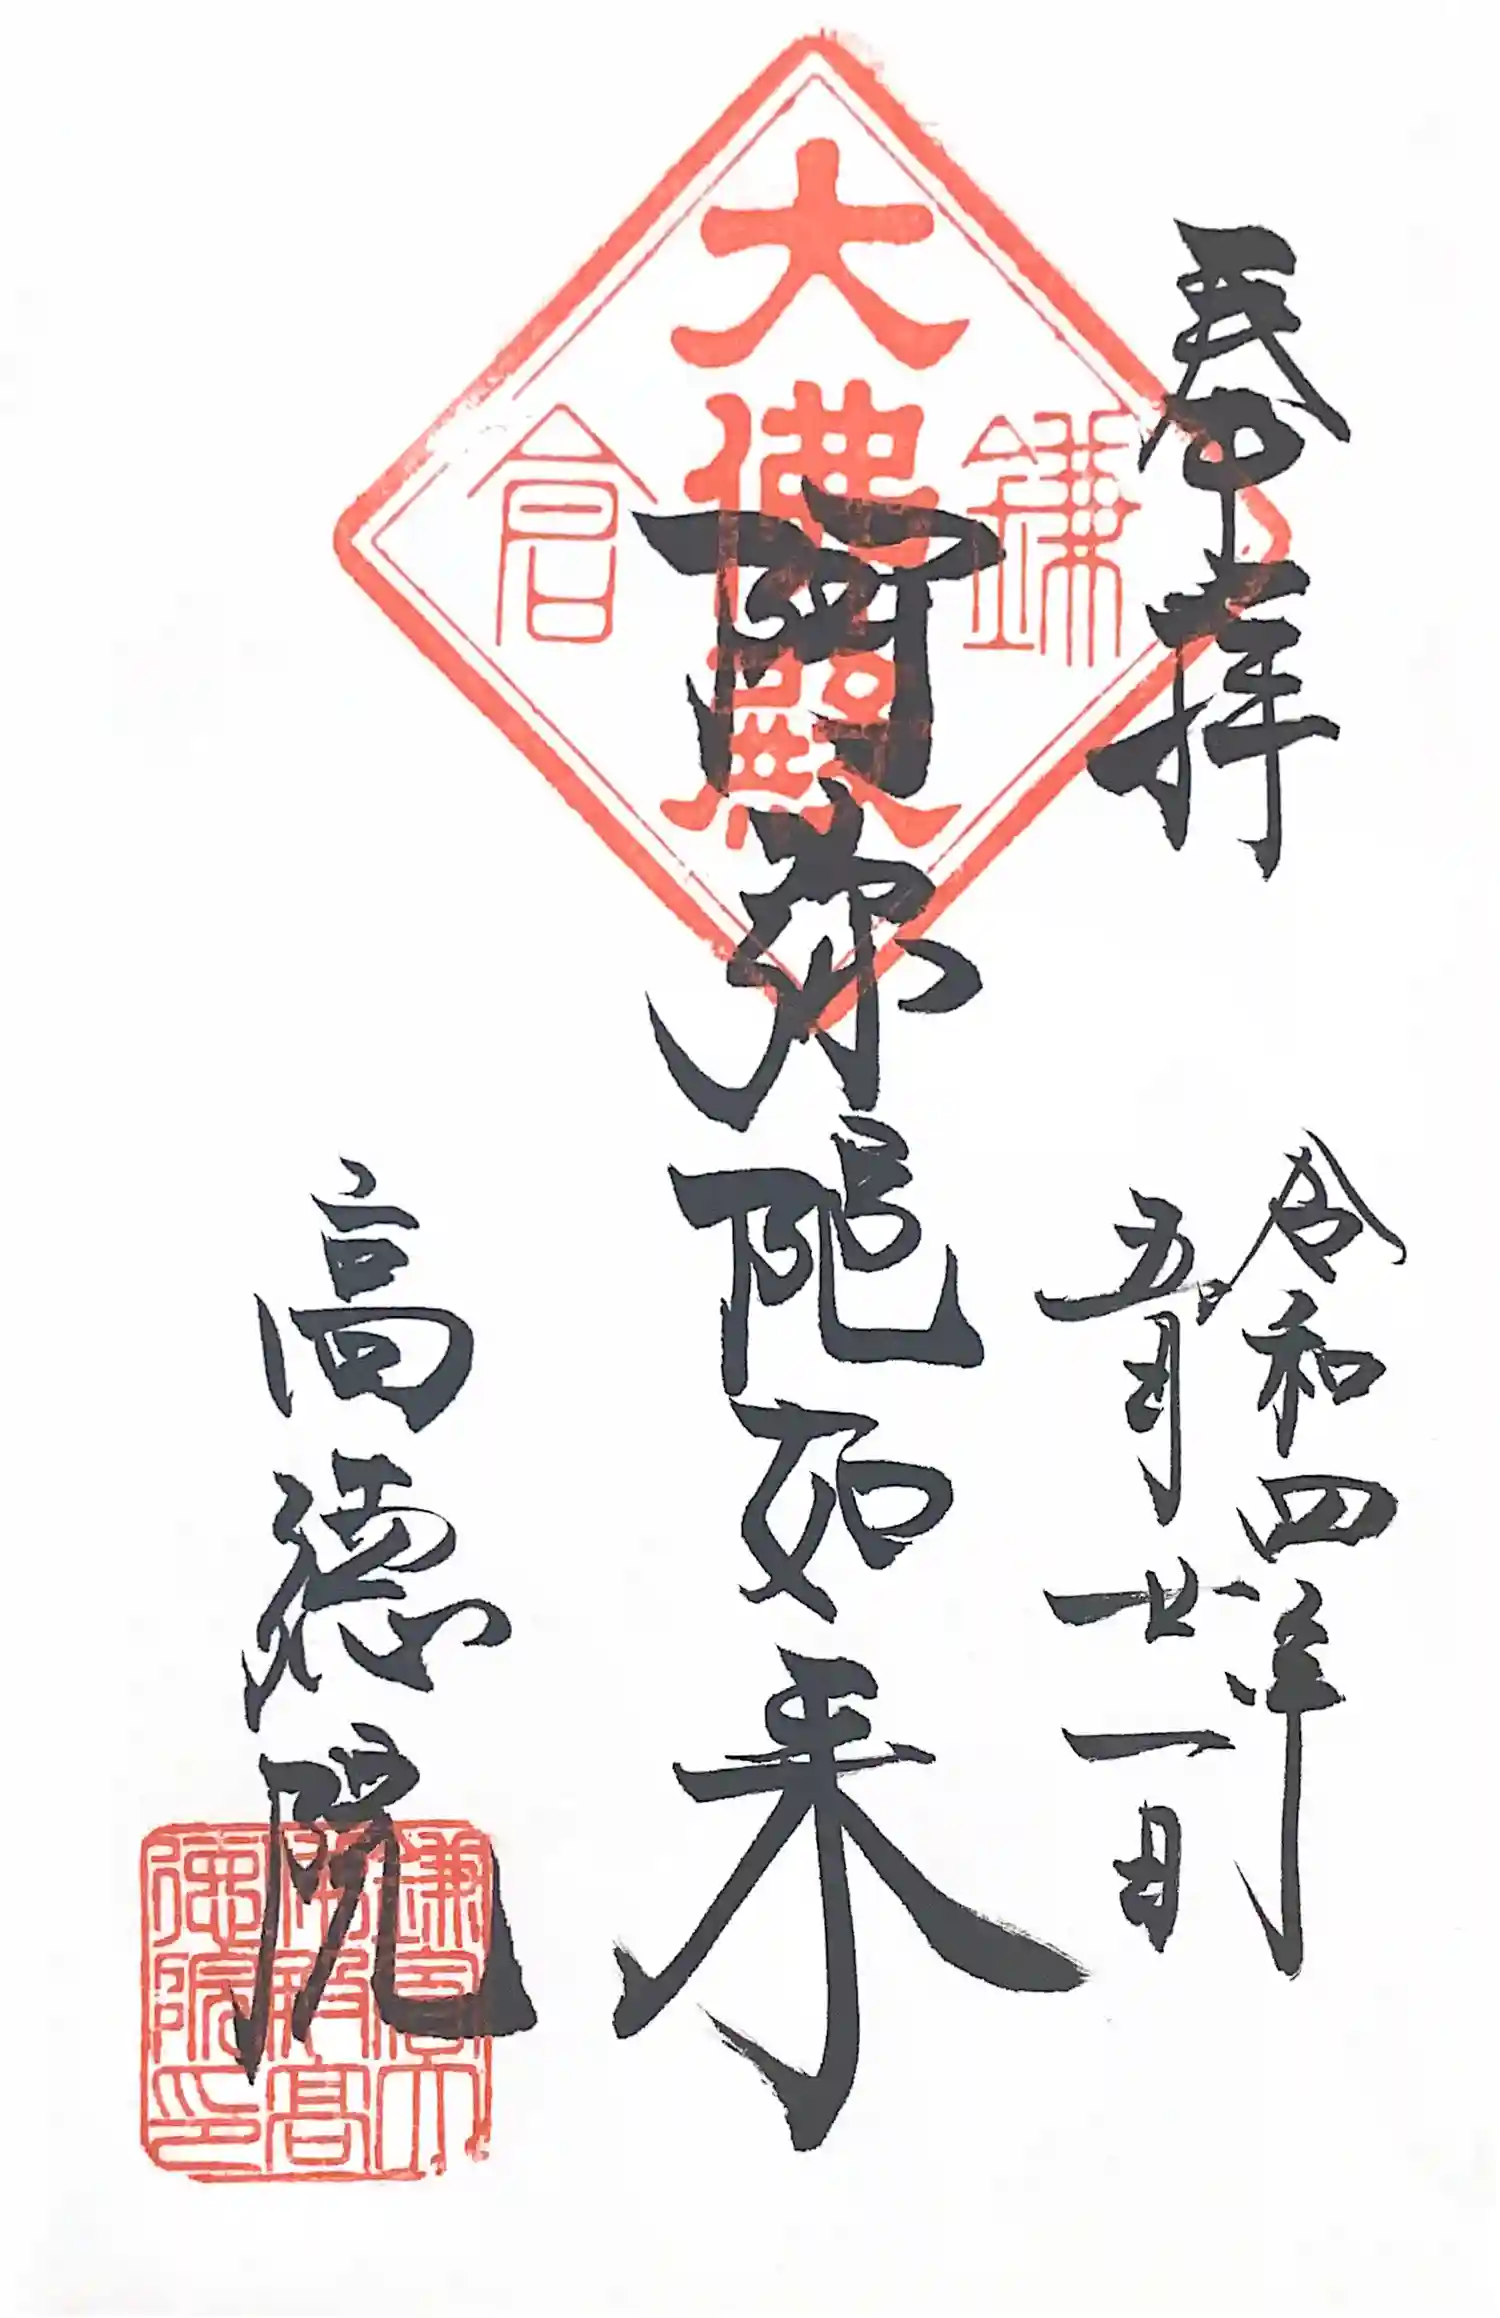 奉拝
令和四年
五月廿一日
大佛殿
鎌倉
阿弥陀如来
高徳院
鎌倉大
佛殿高
徳院印